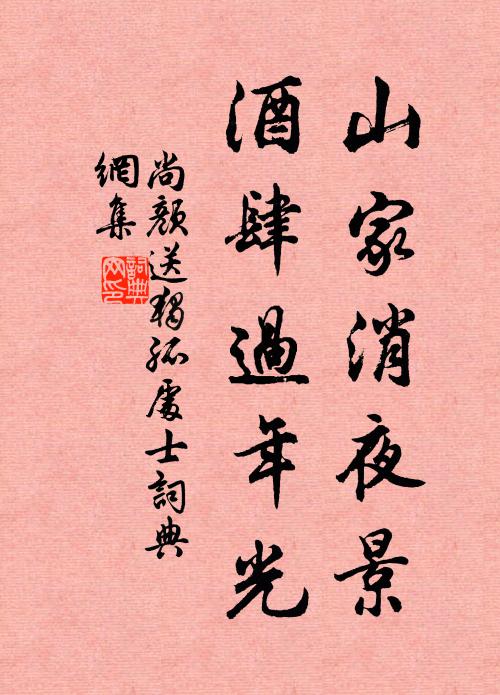 山家消夜景
酒肆過年光
尚顏送獨孤處士詞典
網集
詞典網印